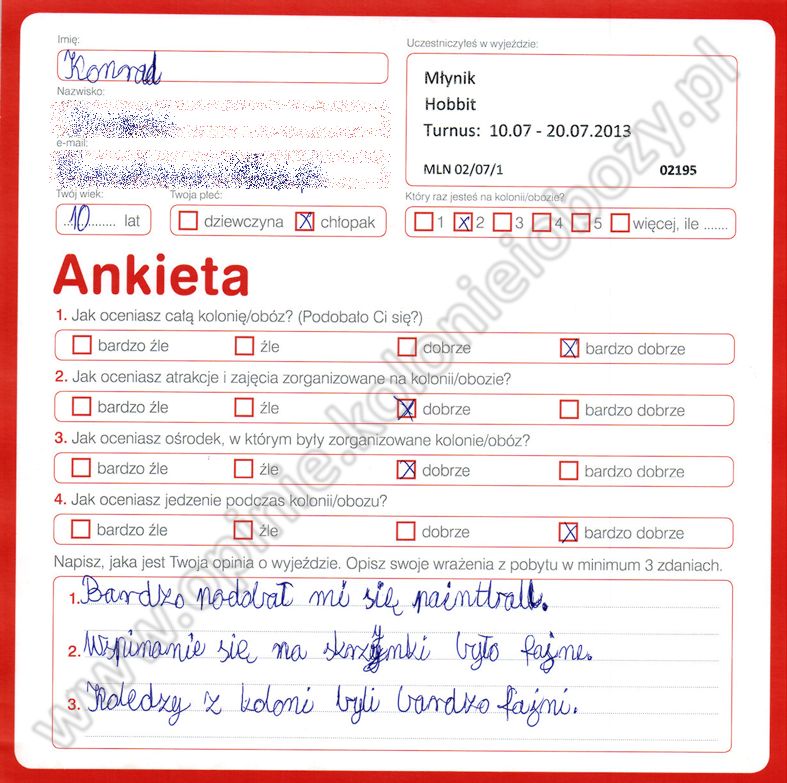 Imię:
Konrad
Nazwisko:
e-mail:
Twój wiek:
10 lat
Twoja płeć:
dziewczyna X chłopak
Uczestniczyłeś w wyjeździe:
Młynik
Hobbit
Turnus: 10.07 - 20.07.2013
MLN 02/07/1 02195
Który raz jesteś na kolonii/obozie?
1 X 2 3 4 5 więcej, ile .......
Ankieta
1. Jak oceniasz całą kolonię/obóz? (Podobało Ci się?)
bardzo źle źle dobrze X bardzo dobrze
2. Jak oceniasz atrakcje i zajęcia zorganizowane na kolonii/obozie?
bardzo źle źle X dobrze bardzo dobrze
3. Jak oceniasz ośrodek, w którym były zorganizowane kolonie/obóz?
bardzo źle źle X dobrze bardzo dobrze
4. Jak oceniasz jedzenie podczas kolonii/obozu?
bardzo źle źle dobrze X bardzo dobrze
Napisz, jaka jest Twoja opinia o wyjeździe. Opisz swoje wrażenia z pobytu w minimum 3 zdaniach.
1. Bardzo podobał mi się paintball.
2. Wspinanie się na skrzynki było fajne.
3. Koledzy z koloni byli bardzo fajni.
www.opinie.kolonieiobozy.pl